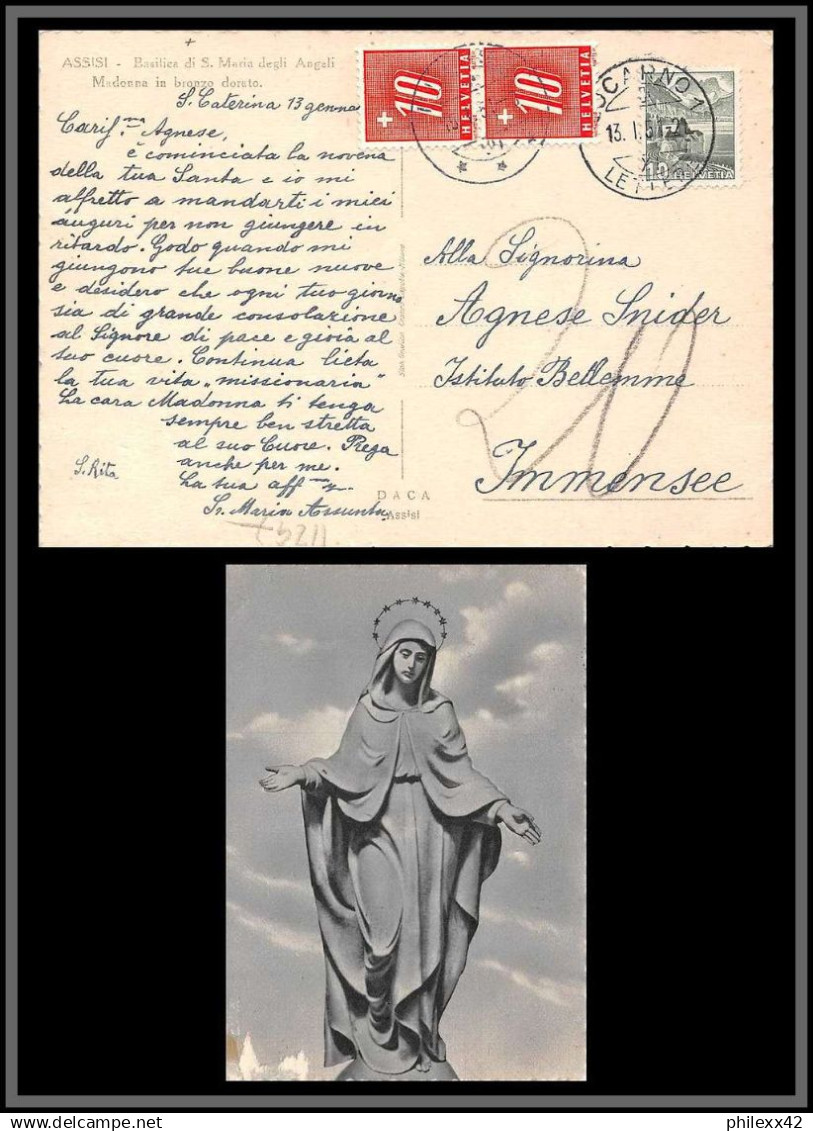 ASSISI - Basilica di S. Maria degli Angeli
Madonna in bronzo dorato.
S. Caterina 13 genna
Caris.ma Agnese,
è cominciata la novena
della tua Santa e io mi
affretto a mandarti i miei
auguri per non giungere in
ritardo. Godo quando mi
giungono tue buone nuove
e desidero che ogni tuo giorno
sia di grande consolazione
al Signore di pace e gioia al
suo cuore. Continua lieta
la tua vita "missionaria"
La cara Madonna ti tenga
sempre ben stretta
al suo Cuore. Prega
anche per me.
La tua aff.ma
Sr. Maria Assunta
S. Rita
11297
DACA
Assisi
+10
HELVETIA
+10
HELVETIA
LOCARNO 1
13. I. 51
LETTERE
10
HELVETIA
20
Alla Signorina
Agnese Snider
Istituto Bellemme
Immensee
philexx42